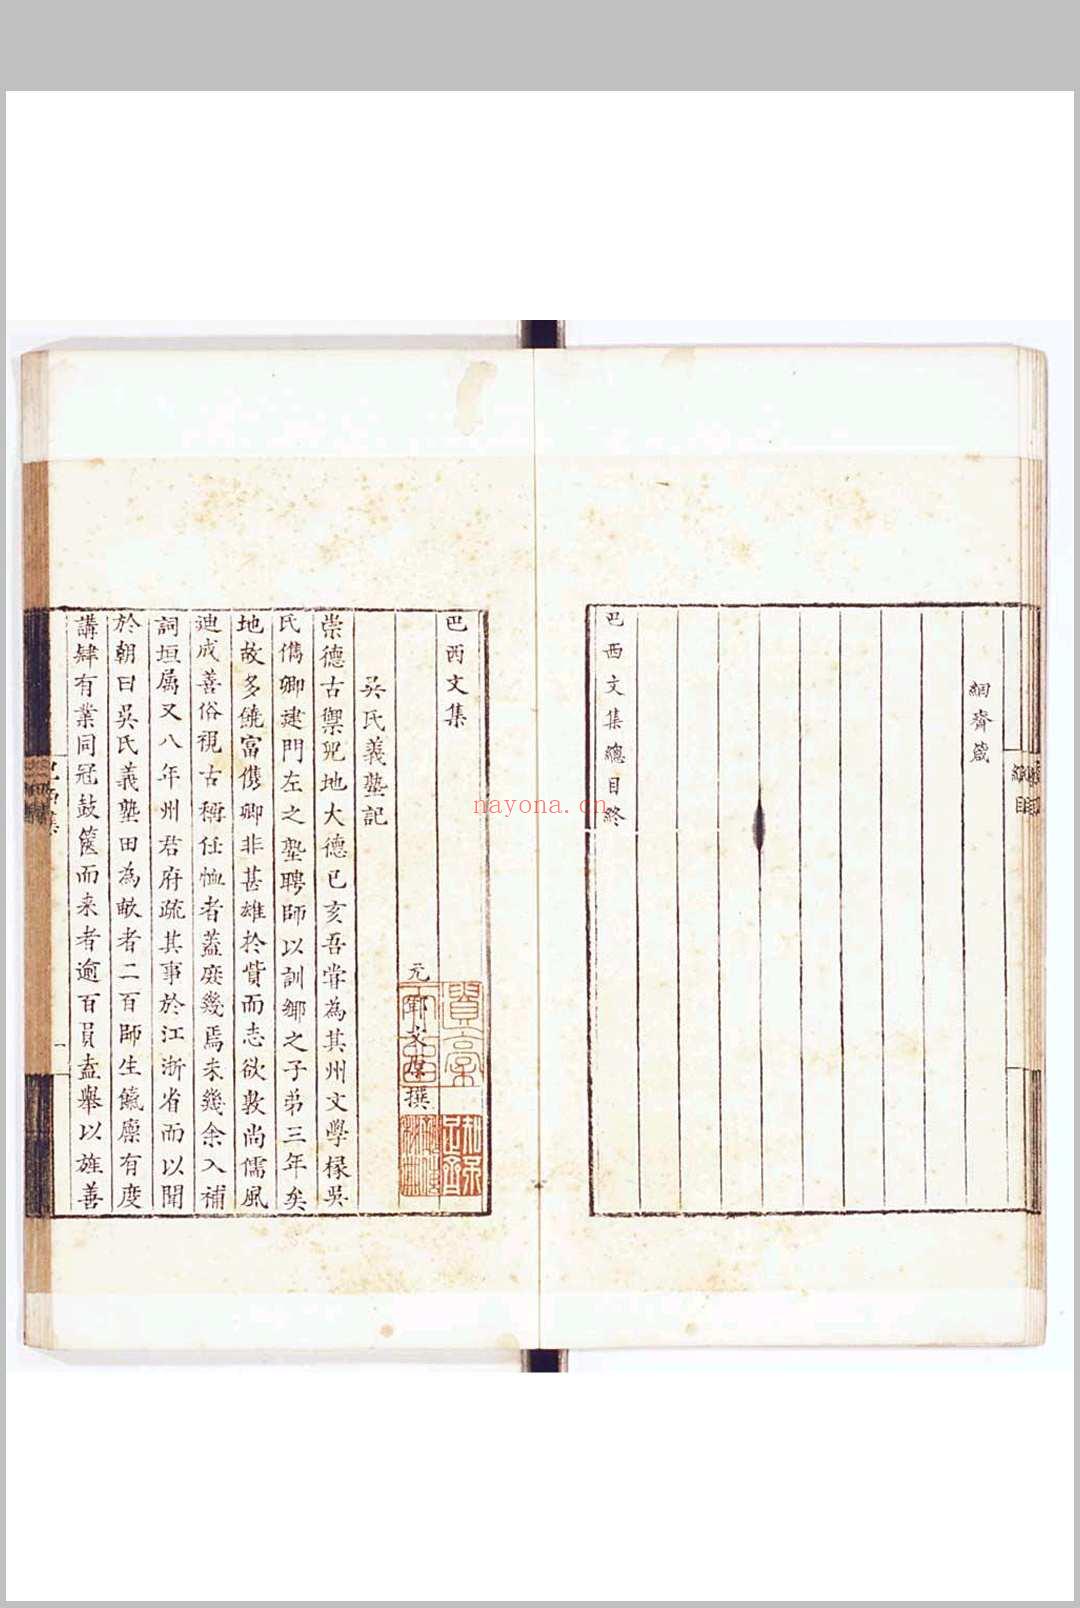 絅齋箴
巴西文集總目終
巴西文集
元 鄧文原 撰
吳氏義塾記
崇德古禦兒地大德已亥吾嘗為其州文學掾吳
氏儁卿建門左之塾聘師以訓鄉之子弟三年矣
地故多饒富儁卿非甚雄於貲而志欲敦尚儒風
迪成善俗視古稱任恤者蓋庶幾焉未幾余入補
詞垣屬又八年州君府疏其事於江浙省而以聞
於朝曰吳氏義塾田為畝者二百師生餼廩有度
講肄有業同冠鼓篋而来者逾百員盍舉以旌善
nayona.cn